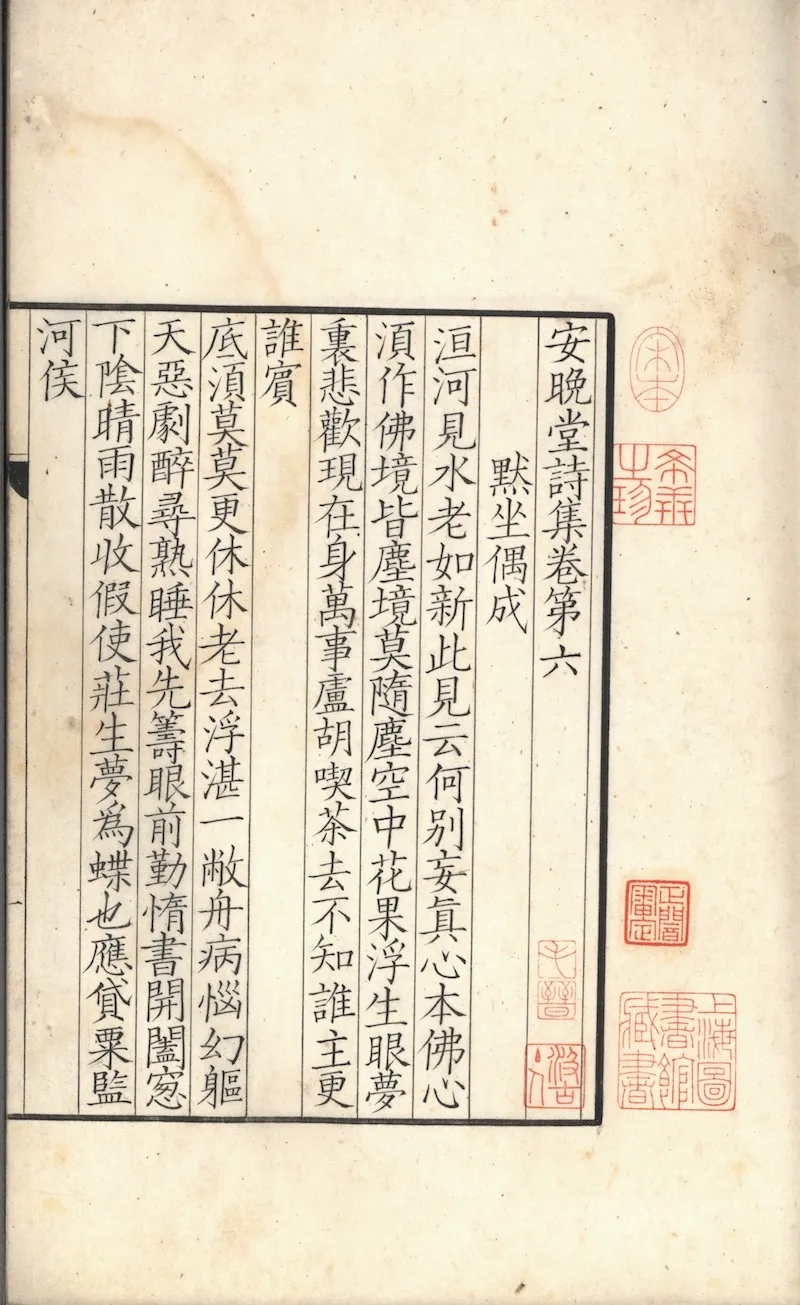 安晚堂詩集卷第六
默坐偶成
洹河見水老如新此見云何別妄眞心本佛心
湏作佛境皆塵境莫隨塵空中花果浮生眼夢
裏悲歡現在身萬事盧胡喫茶去不知誰主更
誰賓
底湏莫莫更休休老去浮湛一敝舟病惱幻軀
天惡劇醉尋熟睡我先籌眼前勤惰書開闔窓
下陰晴雨散收假使莊生夢爲蝶也應貸粟監
河侯
一
宋本
希世之珍
毛晉
上海圖書館藏書